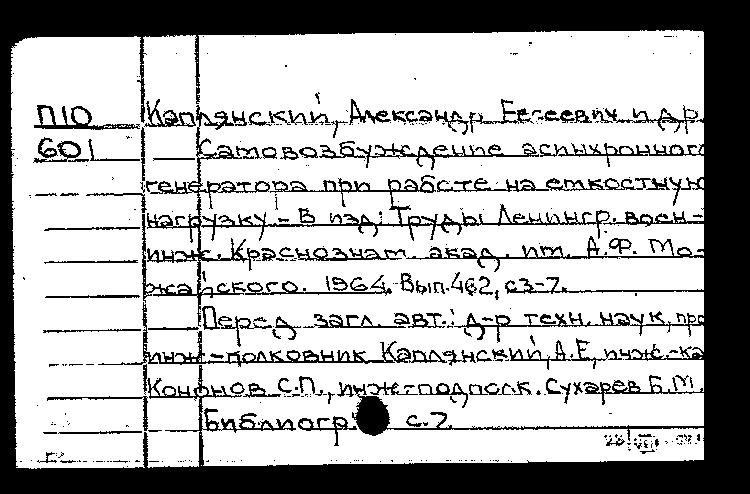 П10 Каплянский, Александр Евсеевич и др.
601 Самовозбуждение асинхронного
генератора при работе на емкостную
нагрузку - В изд: Труды Ленингр. воен-
инж. Краснознам. акад. им. А.Ф. Мо-
жайского. 1964. Вып.462, с3-7.
Перед загл. авт.: д-р техн. наук, про
инж-полковник Каплянский, А.Е, инж-ка
Кононов С.П., инж-подполк. Сухарев Б.М.
Библиогр. с.7.